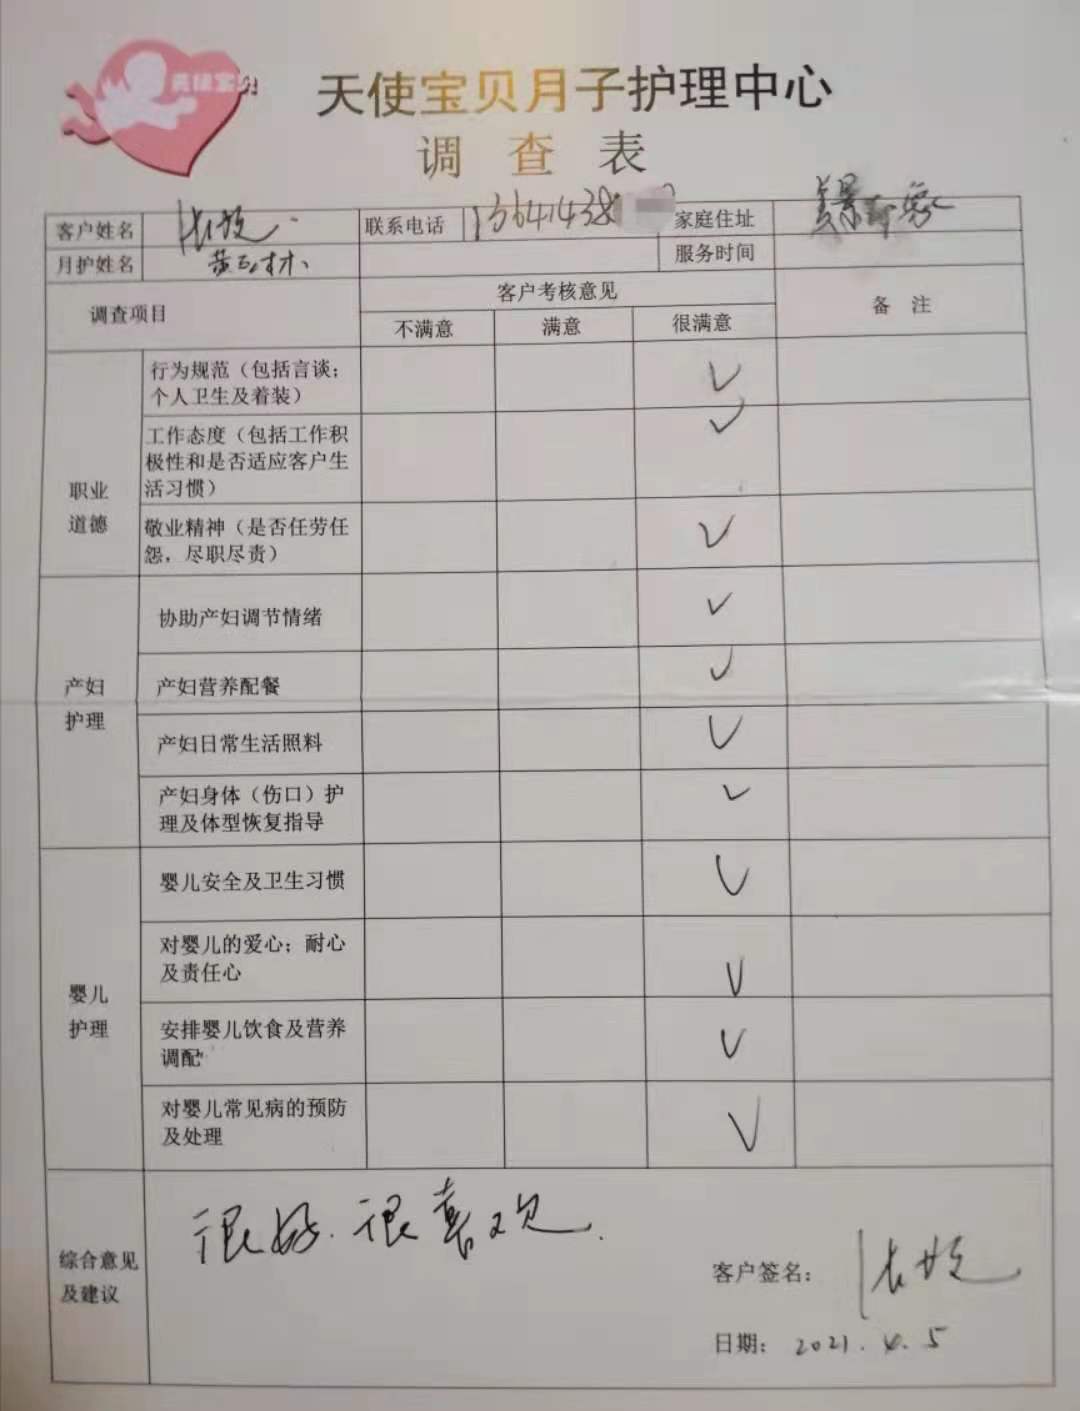 天使宝贝
天使宝贝月子护理中心
调查表
客户姓名 联系电话 13641438 家庭住址
月护姓名 服务时间
调查项目 客户考核意见 备 注
不满意 满意 很满意
职业
道德
行为规范（包括言谈；
个人卫生及着装） ✓
工作态度（包括工作积
极性和是否适应客户生
活习惯） ✓
敬业精神（是否任劳任
怨，尽职尽责） ✓
产妇
护理
协助产妇调节情绪 ✓
产妇营养配餐 ✓
产妇日常生活照料 ✓
产妇身体（伤口）护
理及体型恢复指导 ✓
婴儿
护理
婴儿安全及卫生习惯 ✓
对婴儿的爱心；耐心
及责任心 ✓
安排婴儿饮食及营养
调配 ✓
对婴儿常见病的预防
及处理 ✓
综合意见
及建议
很好.很喜欢.
客户签名：
日期： 2021.4.5